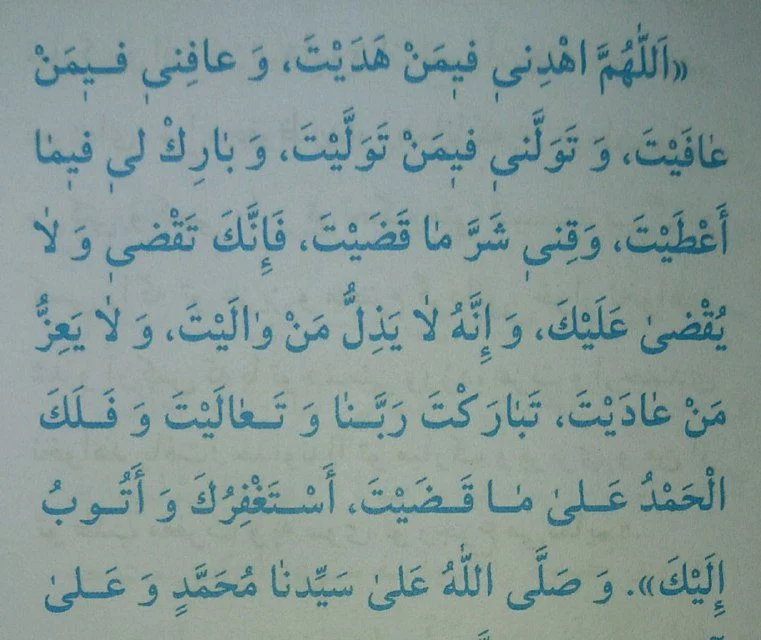 «اَللّٰهُمَّ اهْدِنیٖ فیٖمَنْ هَدَيْتَ، وَ عافِنیٖ فـیٖمَنْ
عٰافَيْتَ، وَ تَوَلَّنیٖ فیٖمَنْ تَوَلَّيْتَ، وَ بٰارِكْ لیٖ فیٖمٰا
أَعْطَيْتَ، وَقِنیٖ شَرَّ مٰا قَضَيْتَ، فَإِنَّكَ تَقْضیٖ وَ لٰا
يُقْضیٰ عَلَيْكَ، وَ إِنَّهُ لٰا يَذِلُّ مَنْ وٰالَيْتَ، وَ لٰا يَعِزُّ
مَنْ عٰادَيْتَ، تَبٰارَكْتَ رَبَّـنٰا وَ تَـعٰالَيْتَ وَ فَـلَكَ
الْحَمْدُ عَـلیٰ مٰـا قَـضَيْتَ، أَسْـتَغْفِرُكَ وَ أَتُـوبُ
إِلَيْكَ». وَ صَلَّی اللّٰهُ عَلیٰ سَيِّدنٰا مُحَمَّدٍ وَ عَـلیٰ